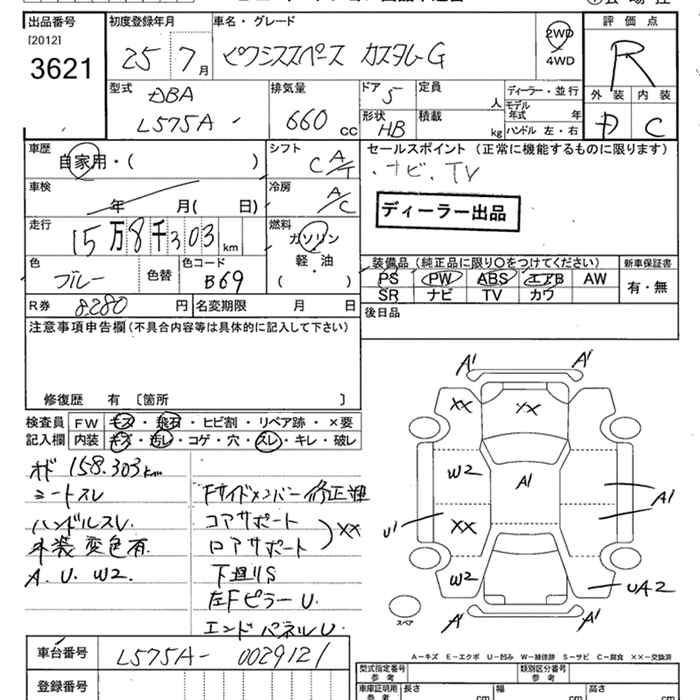 出品番号 初度登録年月 車名・グレード 評価点
[2012]
3621 25 7月 ピクシススペース カスタムG 2WD R
4WD
型式 排気量 ドア 定員 ディーラー・並行 外装 内装
DBA 5 人 モデル年式 年
L575A- 660cc 形状 HB 積載 kg ハンドル 左・右 D C
車歴 シフト セールスポイント (正常に機能するものに限ります)
自家用・( ) C A/T ・ナビ、TV
車検 冷房
年 月( 日) A/C ディーラー出品
走行 燃料
15万8千303km ガソリン
軽・油
( ・ )
色 色替 色コード 装備品 (純正品に限り○をつけてください) 新車保証書
ブルー B69 PS PW ABS エアB AW 有・無
SR ナビ TV カワ
R券 8,280円 名変期限 月 日 後日品
注意事項申告欄 (不具合内容等は具体的に記入して下さい)
修復歴 有 〔箇所 〕
検査員 FW キズ・飛石・ヒビ割・リペア跡・×要
記入欄 内装 キズ・汚レ・コゲ・穴・スレ・キレ・破レ
オド 158.303km
シートスレ Fサイドメンバー修正歴
ハンドルスレ コアサポート
外装 変色有 ロアサポート ××
A. U. W2. 下廻りS
左FピラーU.
エンドパネルU.
A1 A1
XX XX
W2 A1 A1
U1 XX
W2 UA2
A1 A1
スペア
A-キズ E-エクボ U-凹み W-補修跡 S-サビ C-腐食 ××-交換済
車台番号 L575A- 0029121
登録番号
型式指定番号 参考 類別区分番号 参考
車庫証明用 参考 長さ cm 幅 cm 高さ cm